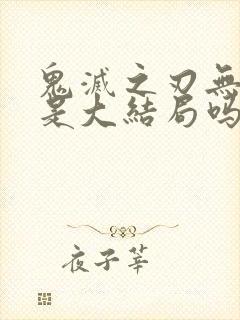 鬼滅之刃無
是大結局嗎
夜子莘